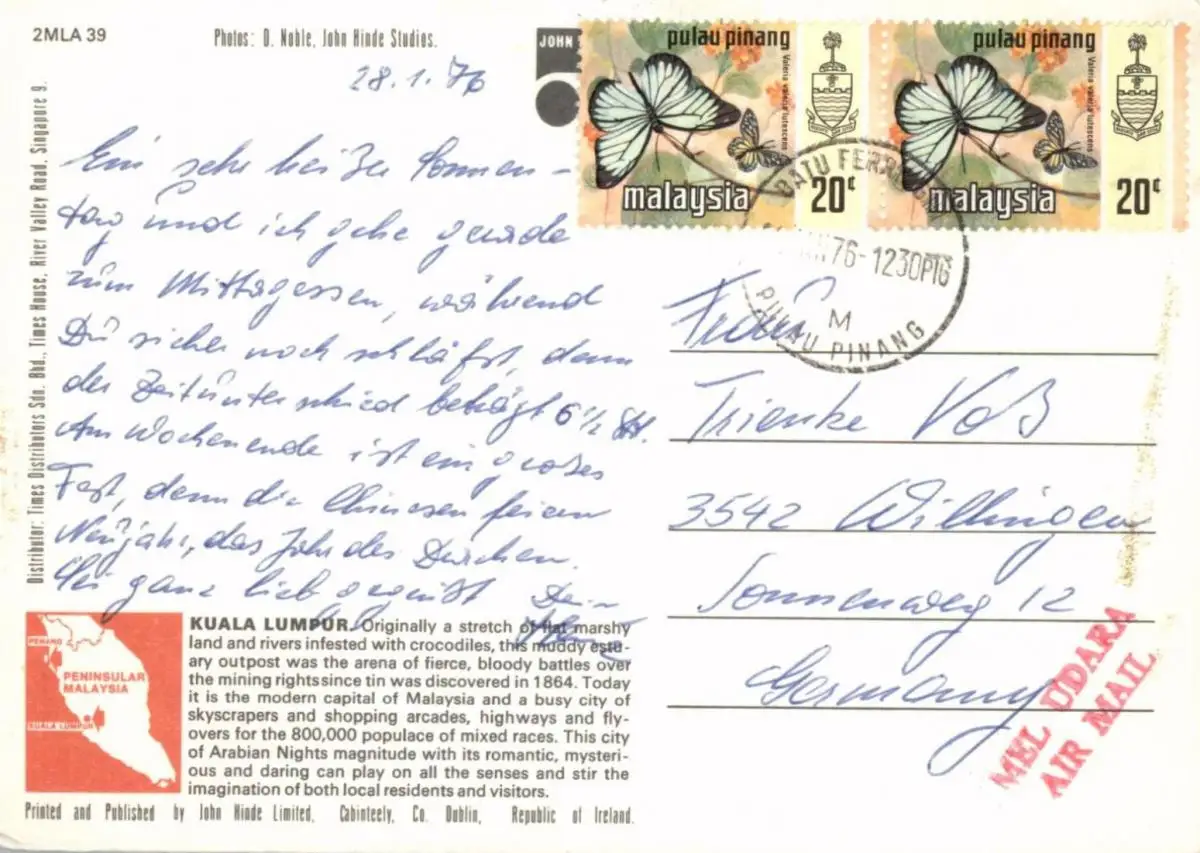 2MLA 39
Photos: D. Noble, John Hinde Studios.
JOHN
28.1.76
Ein sehr heißer Sonnen-
tag und ich gehe gerade
zum Mittagessen, während
Du sicher noch schläfst, denn
der Zeitunterschied beträgt 6 1/2 St.
Am Wochenende ist ein großes
Fest, denn die Chinesen feiern
Neujahr, das Jahr des Drachen.
Sei ganz lieb gegrüßt Dein
Distributor: Times Distributors Sdn. Bhd., Times House, River Valley Road, Singapore 9.
PENANG
PENINSULAR
MALAYSIA
KUALA LUMPUR
KUALA LUMPUR. Originally a stretch of flat marshy
land and rivers infested with crocodiles, this muddy estu-
ary outpost was the arena of fierce, bloody battles over
the mining rights since tin was discovered in 1864. Today
it is the modern capital of Malaysia and a busy city of
skyscrapers and shopping arcades, highways and fly-
overs for the 800,000 populace of mixed races. This city
of Arabian Nights magnitude with its romantic, mysteri-
ous and daring can play on all the senses and stir the
imagination of both local residents and visitors.
Printed and Published by John Hinde Limited, Cabinteely, Co. Dublin, Republic of Ireland.
pulau pinang
Valeria valeria lutescens
malaysia
20c
pulau pinang
Valeria valeria lutescens
malaysia
20c
BATU
76-1230PTG
M
PULAU PINANG
Frau
Trienke Voß
3542 Willingen
Sonnenweg 12
Germany
MEL UDARA
AIR MAIL